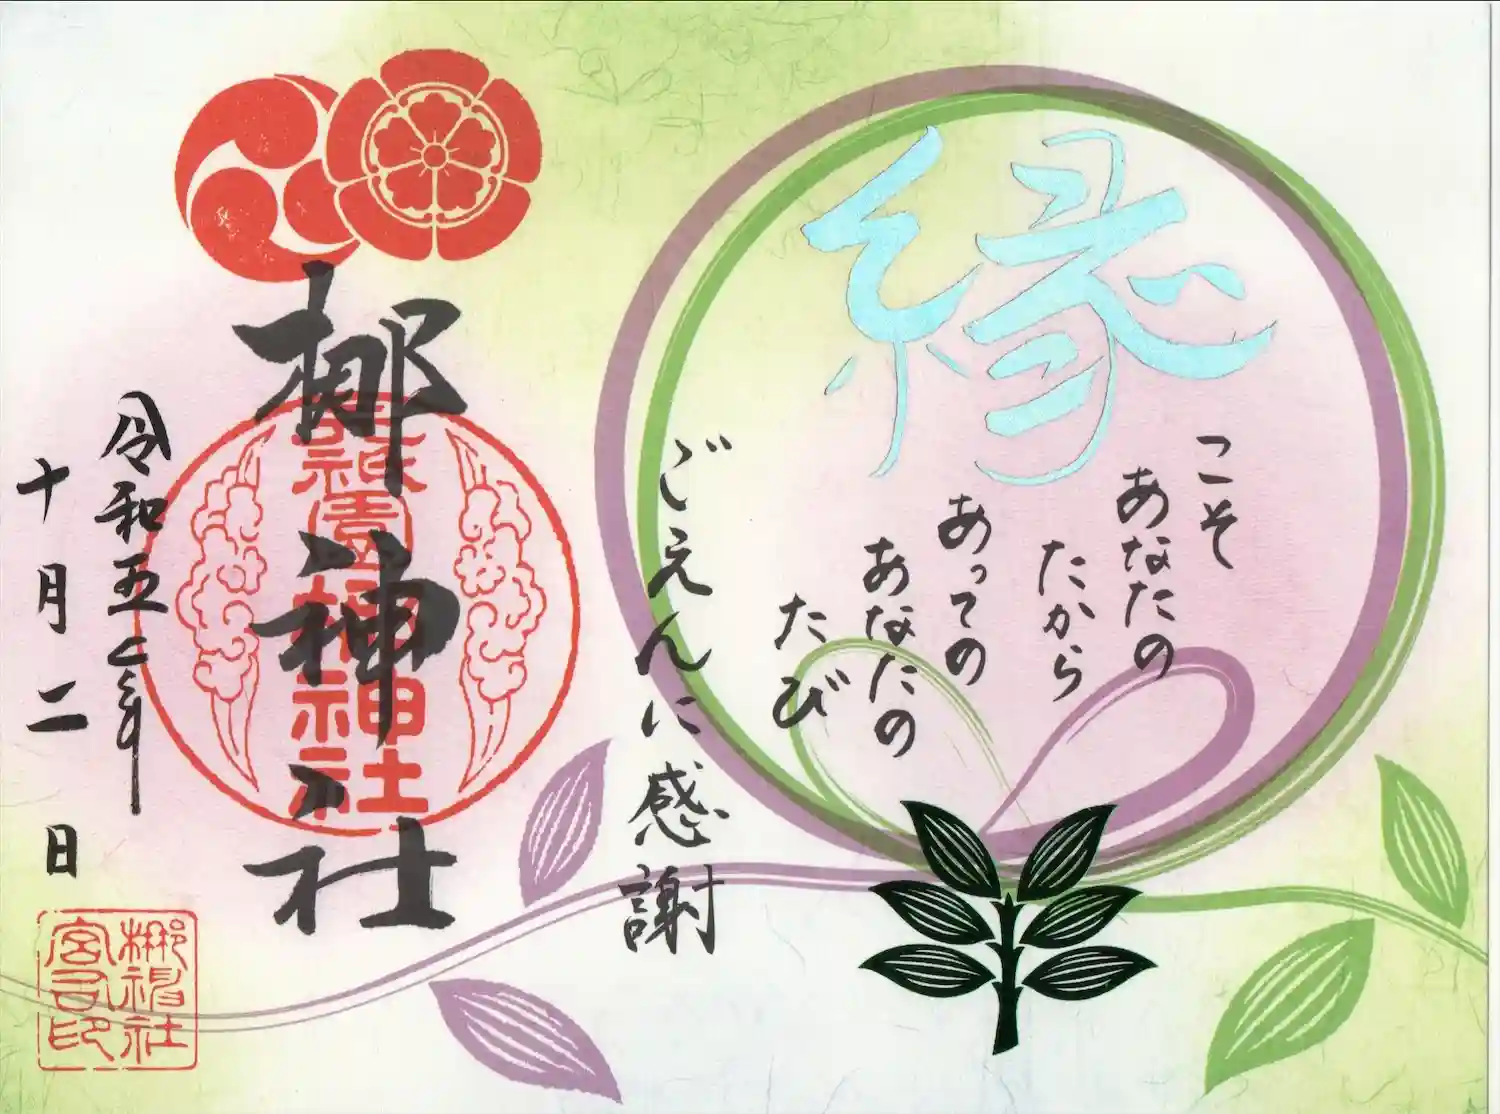 縁
こそ
あなたの
たから
あっての
あなたの
たび
ごえんに感謝
梛神社
元祇園梛神社
令和五年
十月二日
梛神社
宮司印